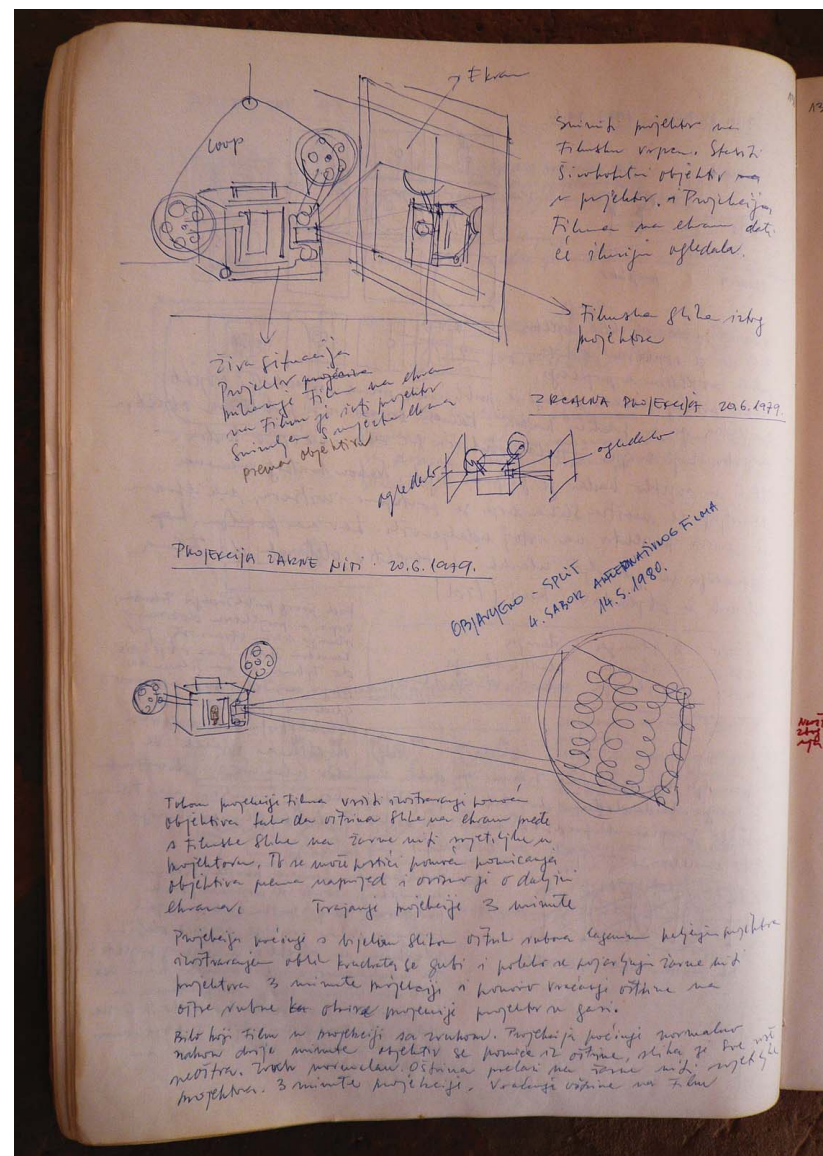 Ekran
Loop
Snimiti projektor na
filmsku vrpcu. Staviti
širokokutni objektiv na
u projektor. Projekcija
filma na ekran dati
će iluziju ogledala.
Filmska slika istog
projektora
Živa situacija
Projektor
prikazuje film na ekran
na filmu je isti projektor
snimljen s mjesta ekrana
prema objektivu
ZRCALNA PROJEKCIJA 20.6.1979.
ogledalo
ogledalo
PROJEKCIJA ŽARNE NITI 20.6.1979.
OBJAVLJENO - SPLIT
4. SABOR ALTERNATIVNOG FILMA
14.5.1980.
Tokom projekcije filma vršiti izoštravanje pomoću
objektiva tako da oštrina slike na ekranu pređe
s filmske slike na žarne niti svjetiljke u
projektoru. To se može postići pomoću pomicanja
objektiva prema naprijed i ovisno je o daljini
ekrana. Trajanje projekcije 3 minute
Projekcija počinje s bijelom slikom oštrih rubova laganim
izoštravanjem oblik kvadrata se gubi i polako se pojavljuju žarne niti
projektora 3 minute projekcije i ponovo vraćanje oštrine na
oštre rubove projekcije projektor se gasi.
Bilo koji film u projekciji sa zvukom. Projekcija počinje normalno
nakon dvije minute objektiv se pomiče iz oštrine, slika je sve
neoštra. Zvuk normalan. Oštrina prelazi na žarne niti svjetiljke
projektora. 3 minute projekcije. Vraćanje oštrine na film
13